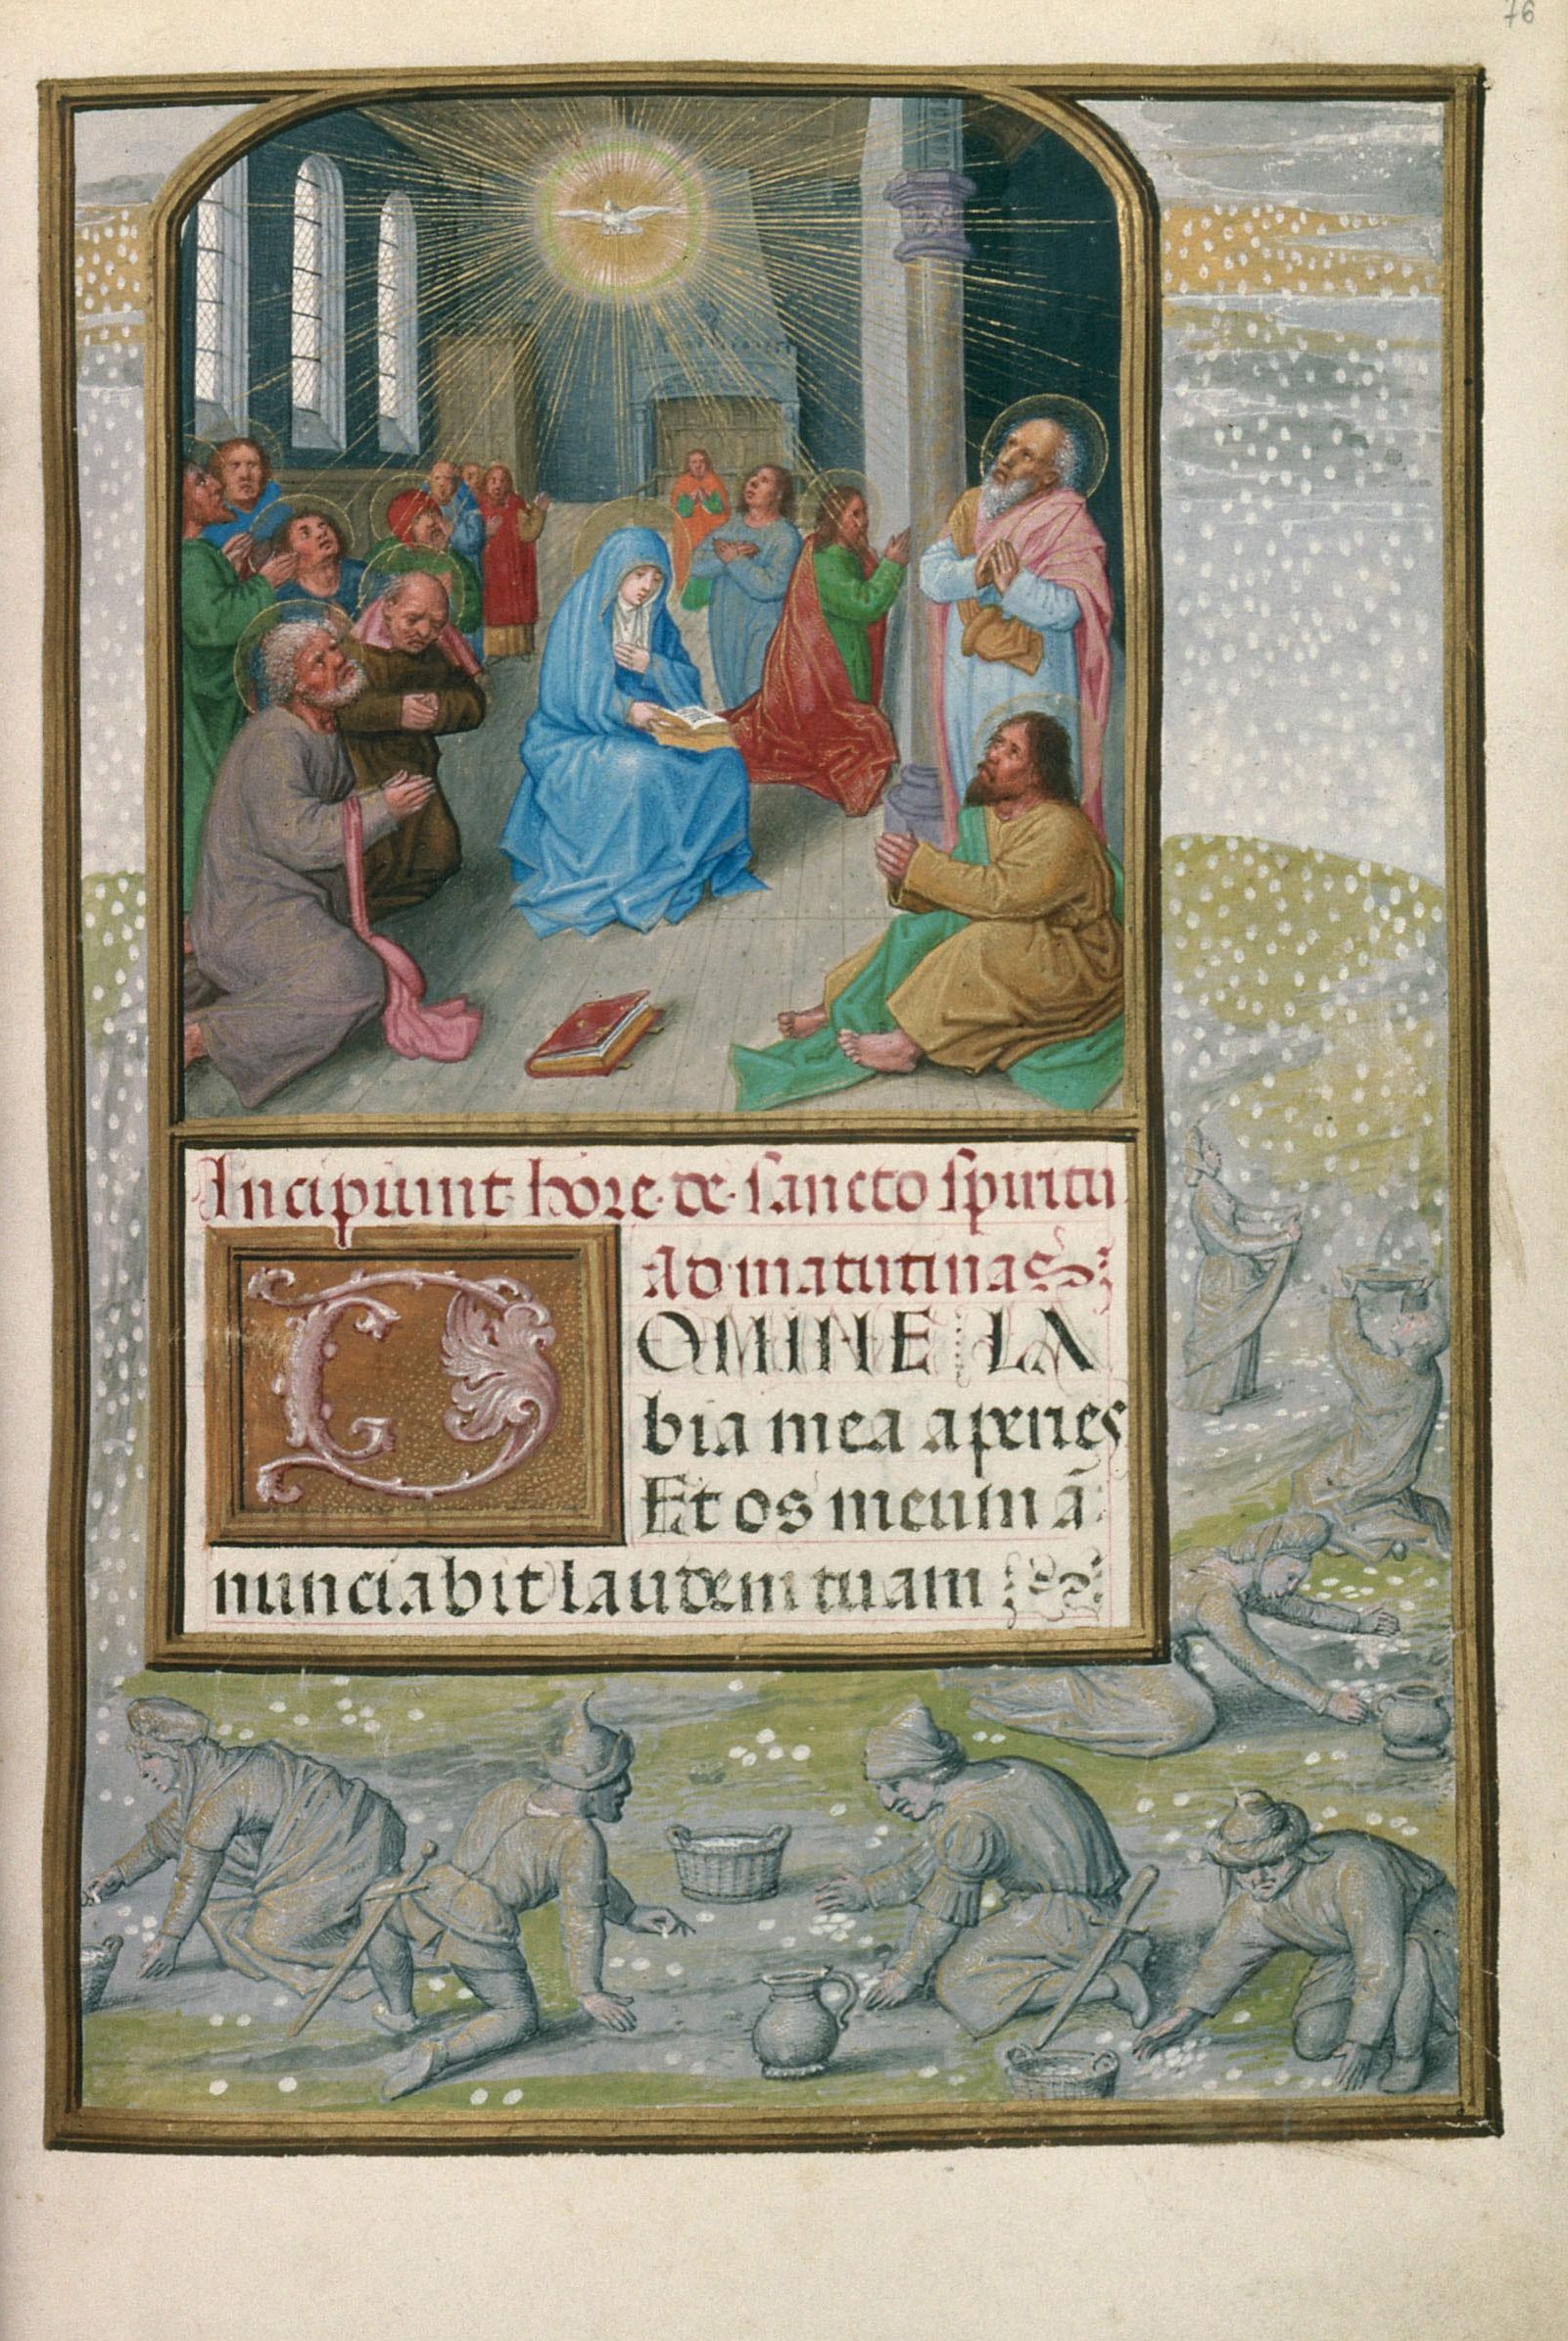 76
Incipiunt hore de sancto spiritu
Ad matutinas
DOMINE LA
bia mea aperies
Et os meum ā
nunciabit laudem tuam